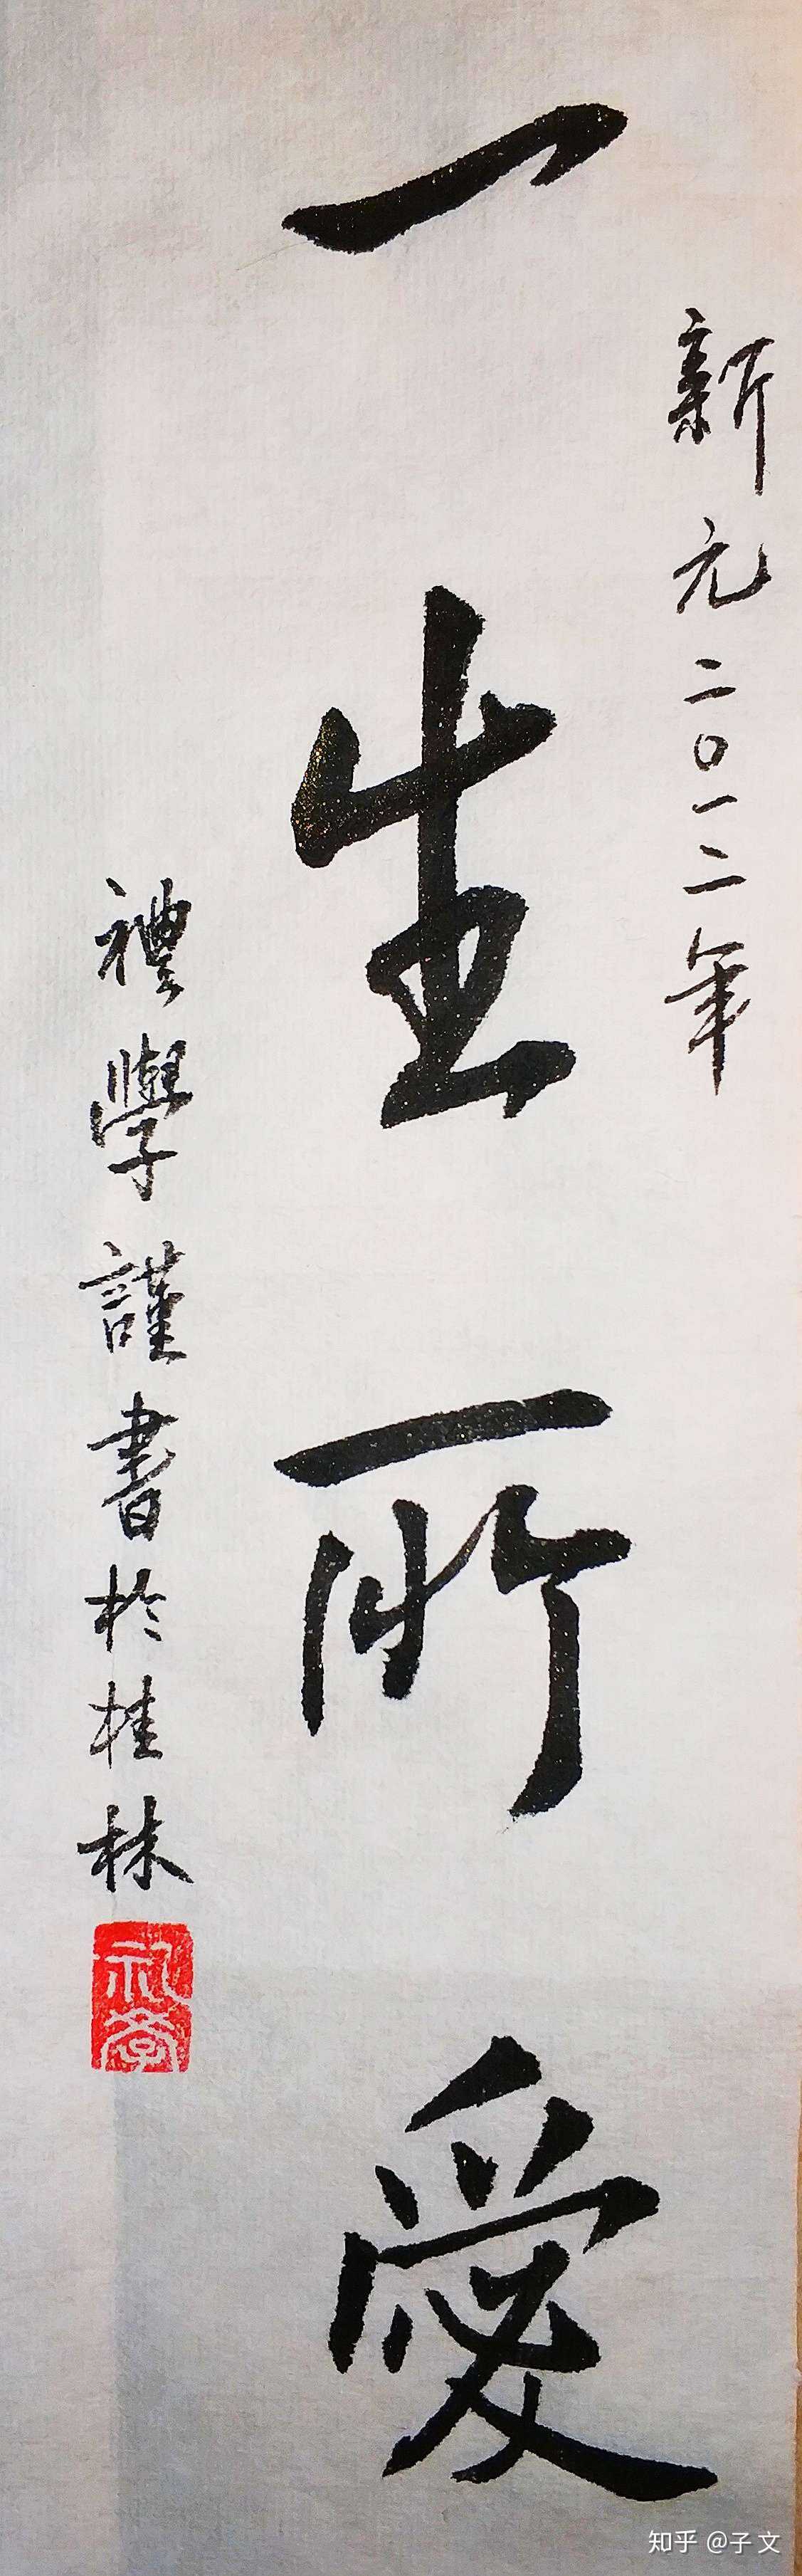 新元二〇一二年
一生所愛
禮學謹書於桂林
礼學
知乎 @子文